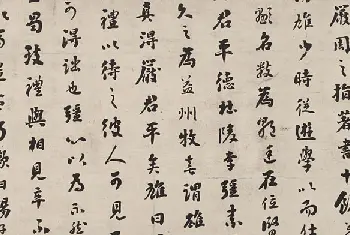 嚴周之指著書十餘
雄少時從遊學以而仕
顯名數為朝廷在位賢
君平德杜陵李彊素
久之為益州牧喜謂雄
真得嚴君平矣雄曰
禮以待之彼人可見
可得詘也彊心以為不然
蜀致禮與相見卒不
以為從事乃歎曰揚